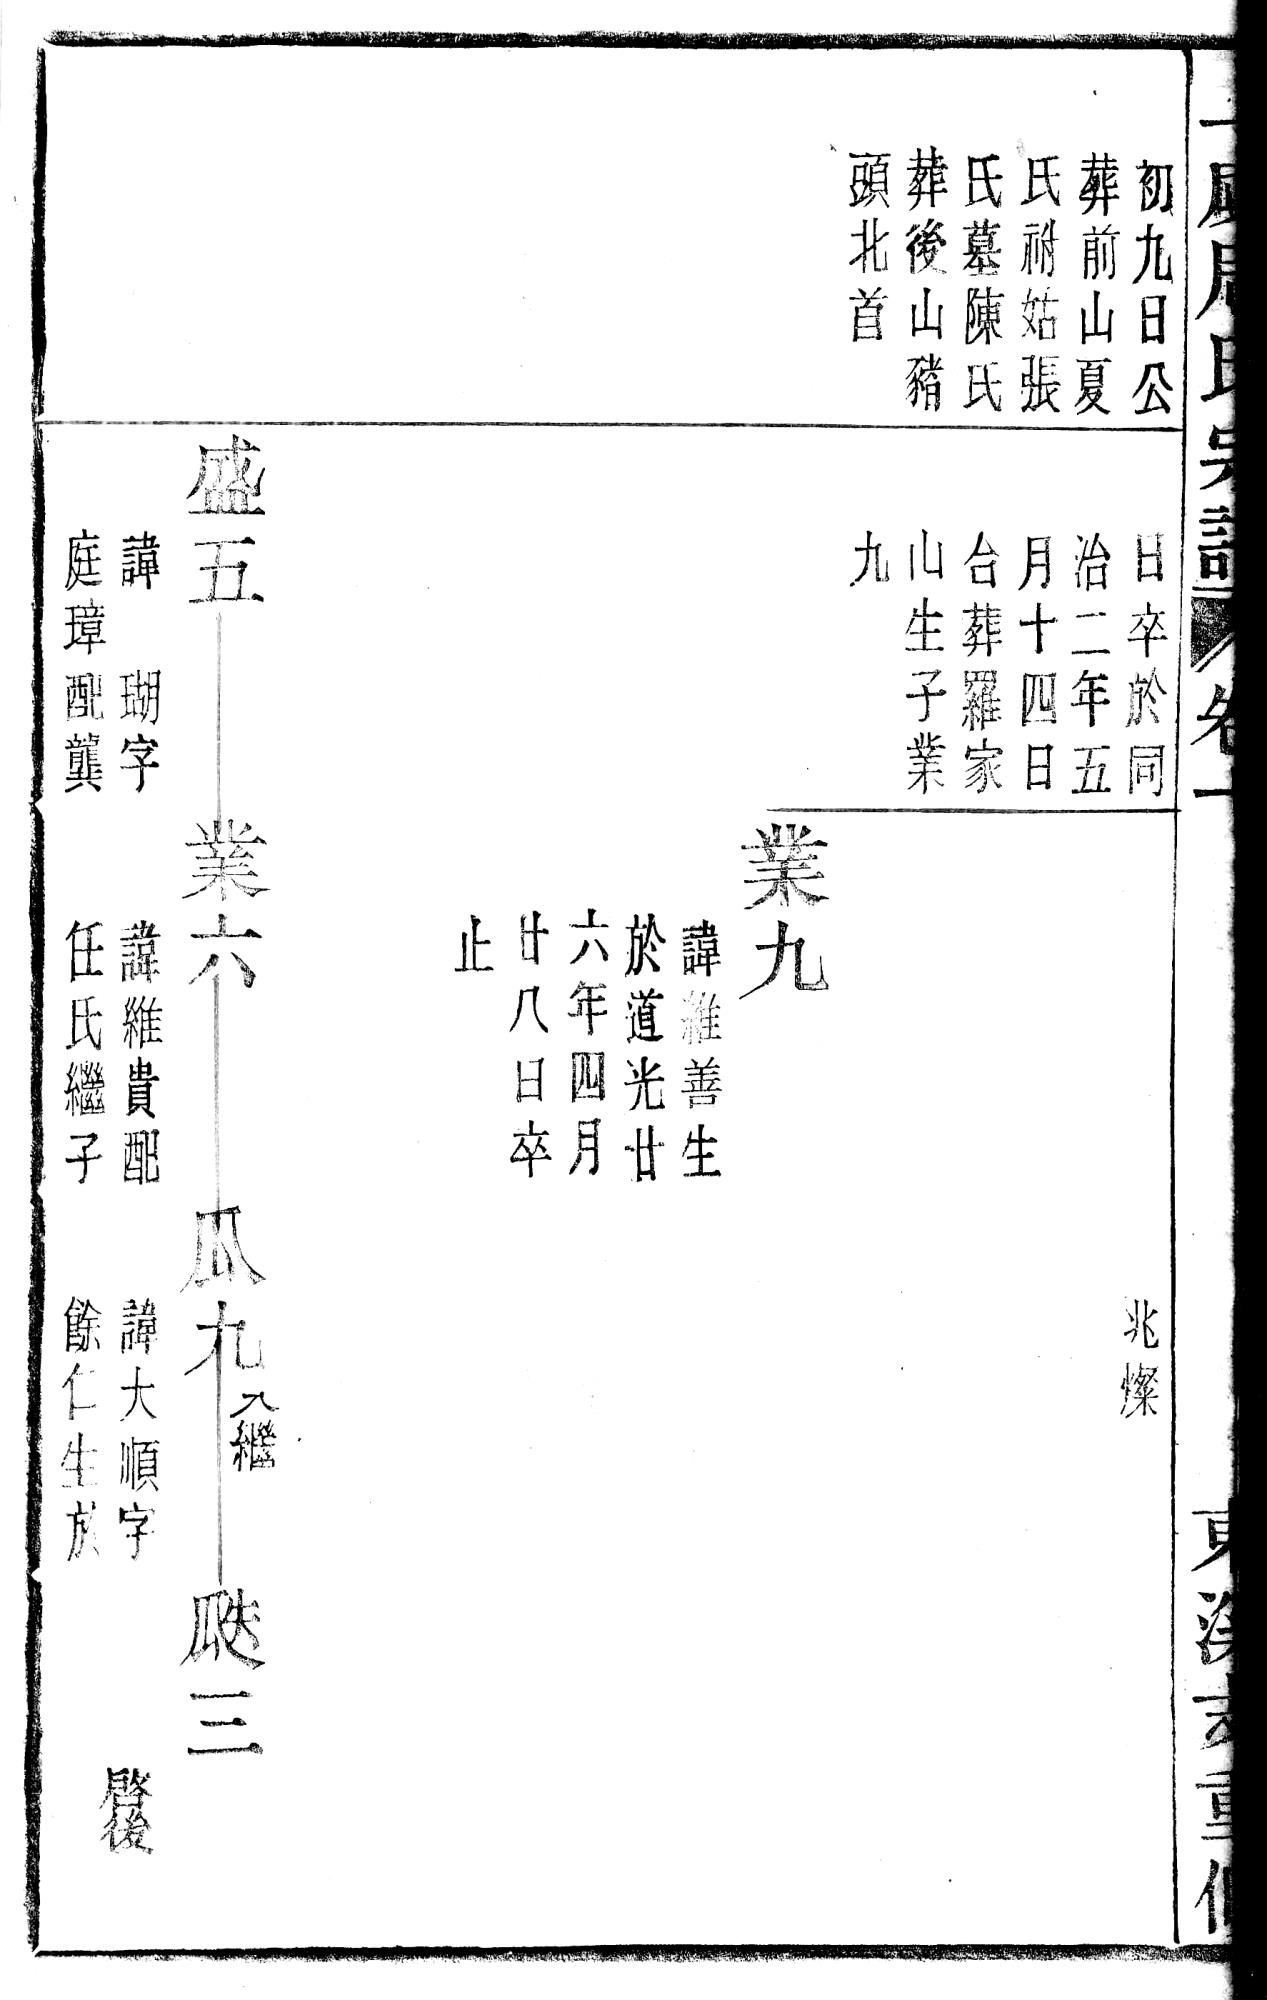 氏宗譜 卷一
重修
初九日公
葬前山夏
氏祔姑張
氏墓陳氏
葬後山豬
頭北首
日卒於同
治二年五
月十四日
台葬羅家
山生子業
九
兆燦
業九
諱維善生
於道光廿
六年四月
廿八日卒
止
盛五
諱 瑚字
庭璋配龔
業六
諱維貴配
任氏繼子
瓜九
入繼
諱大順字
餘仁生於
瓞三
啓後